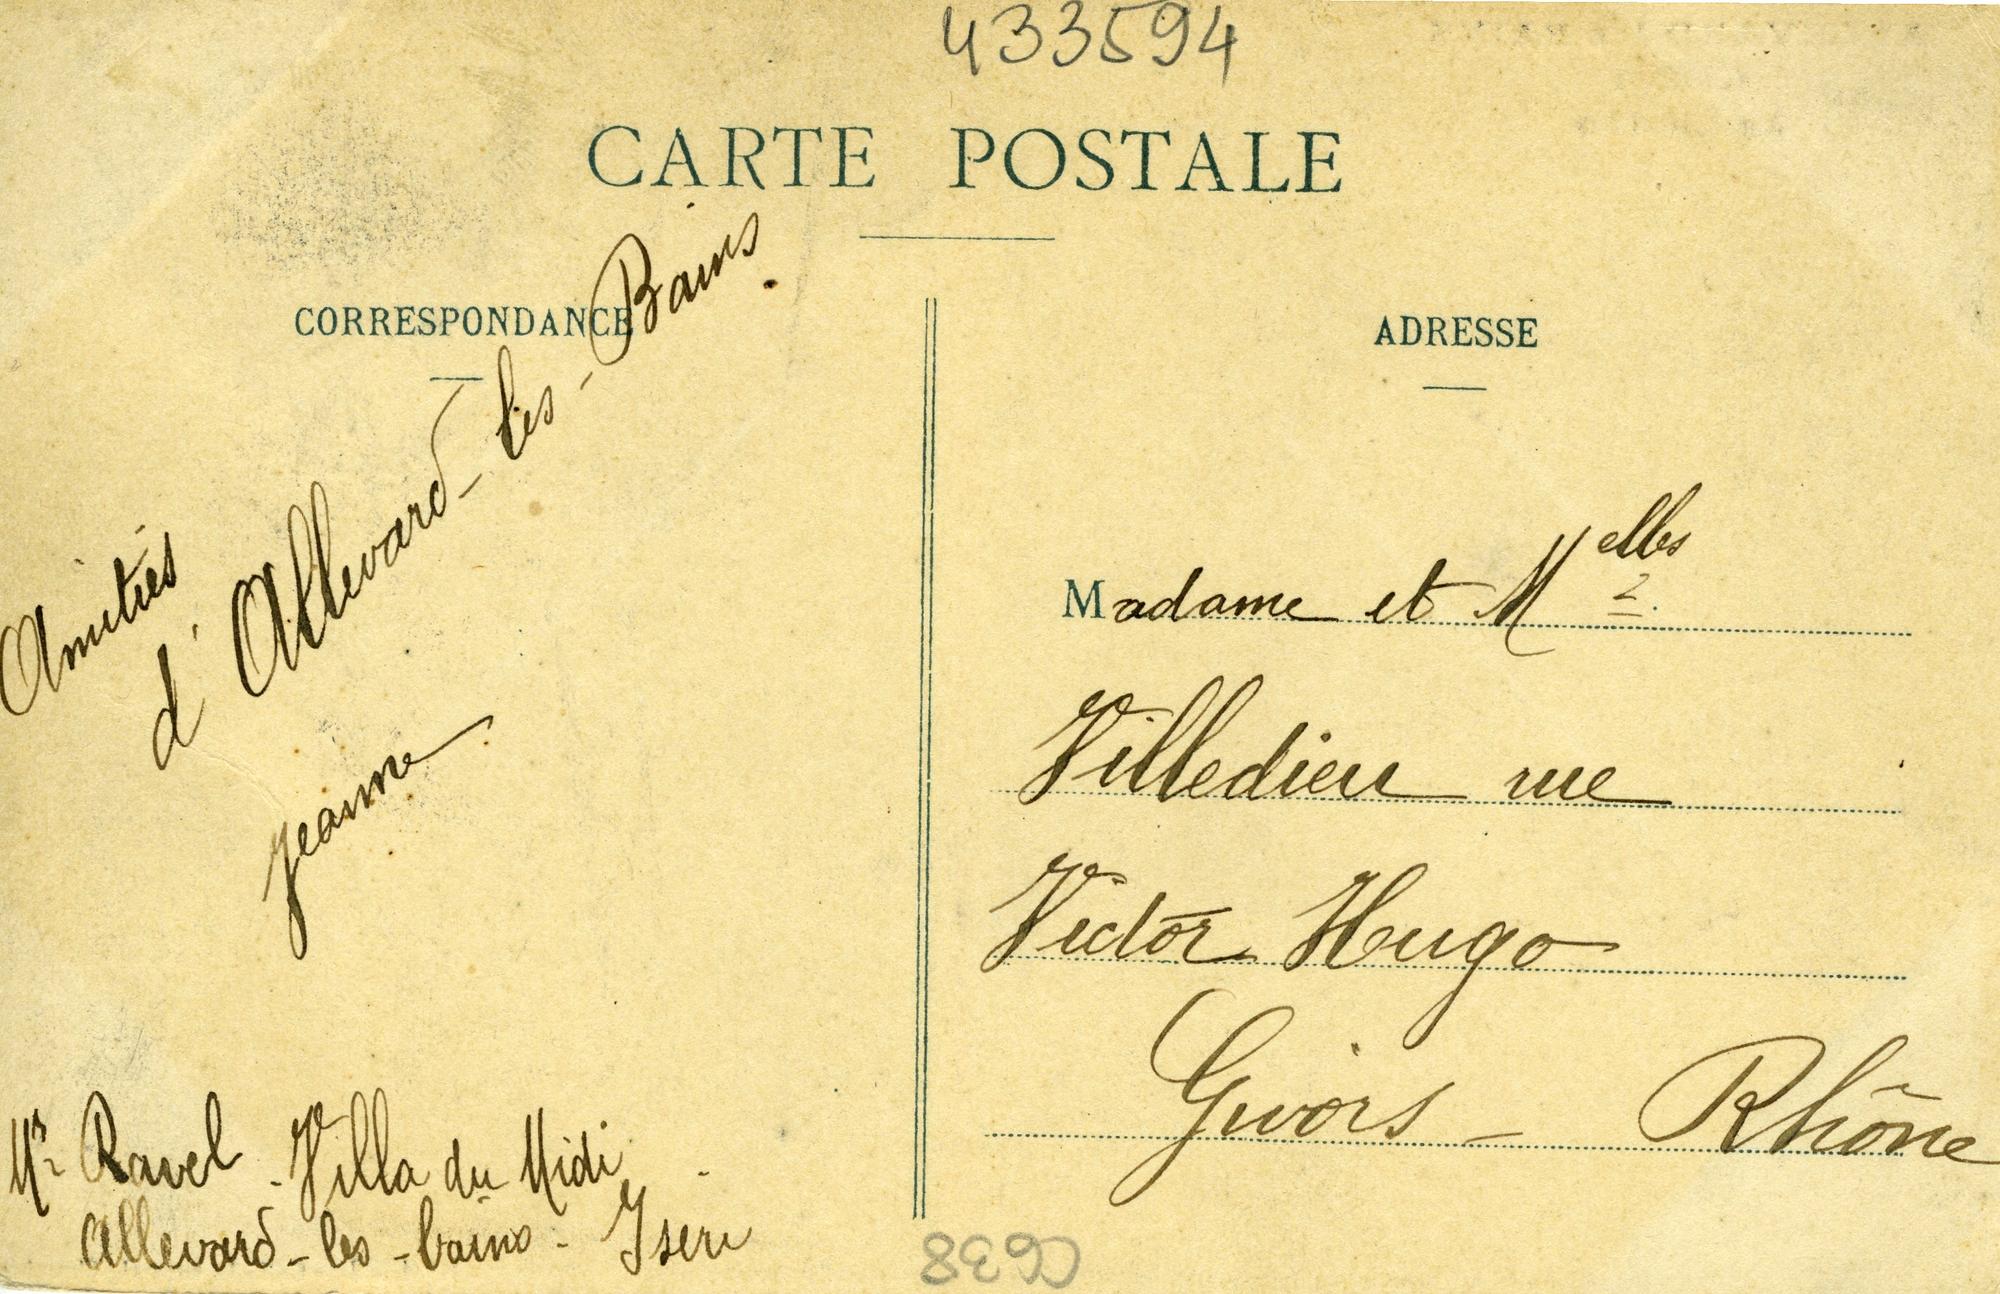 433594
CARTE POSTALE
CORRESPONDANCE
Amitiés
d'Allevard-les-Bains.
Jeanne
Mr Ravel - Villa du Midi -
Allevard-les-bains - Isère
ADRESSE
Madame et Melles
Villedieu rue
Victor Hugo
Givors - Rhône